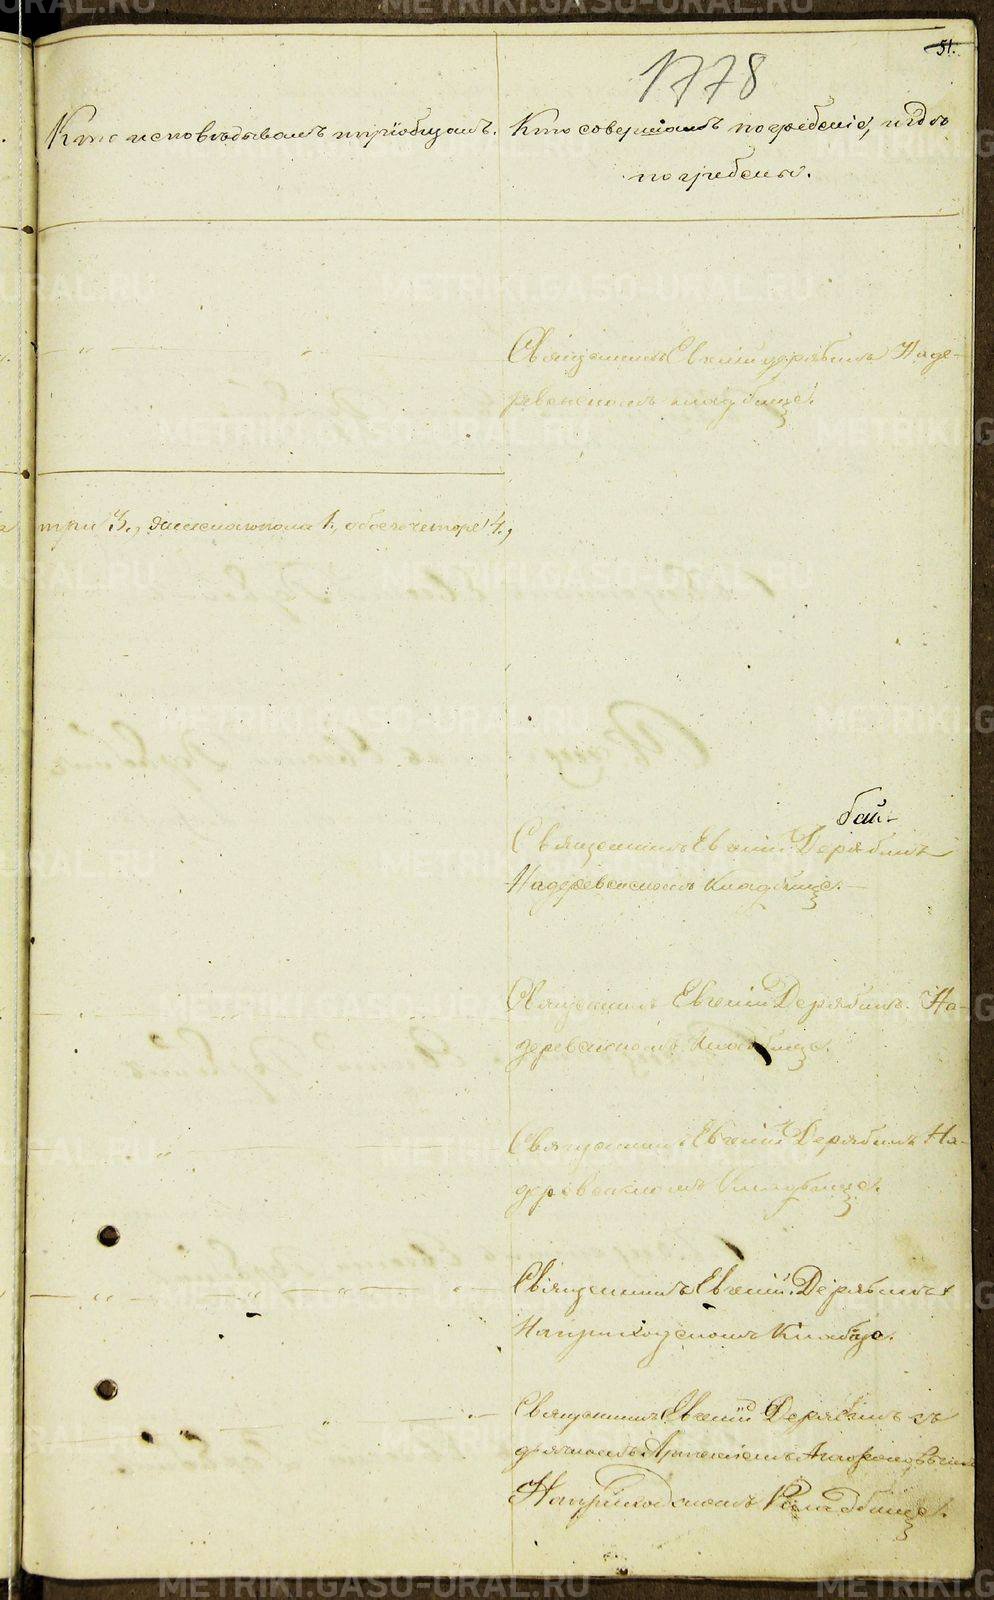 51.
1778
Кто исповѣдывалъ и пріобщалъ.
Кто совершалъ погребеніе, и гдѣ
погребены.
Священникъ Евгеній Дерябинъ На де-
ревенскомъ кладбище.
три 3., женска пола 1., обоего четыре 4.,
Священникъ Евгеній Дерябинъ
На деревенскомъ кладбище.
Священникъ Евгеній Дерябинъ. На-
деревенскомъ кладбище.
Священникъ Евгеній Дерябинъ На-
деревенскомъ кладбище.
Священникъ Евгеній Дерябинъ
На приходскомъ кладбще.
Священникъ Евгеній Дерябинъ съ
На приходскомъ Кладбище.
METRIKI.GASO-URAL.RU